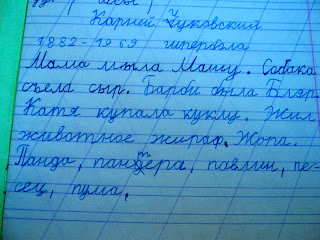 Корней Чуковский
1882-1969 гипербола
Мама мыла Машу. Собака
съела сыр. Барби была Блэр
Катя купала куклу. Жил
животное жираф. Жора.
Панда, пантера, павлин, пе-
сец, пума,